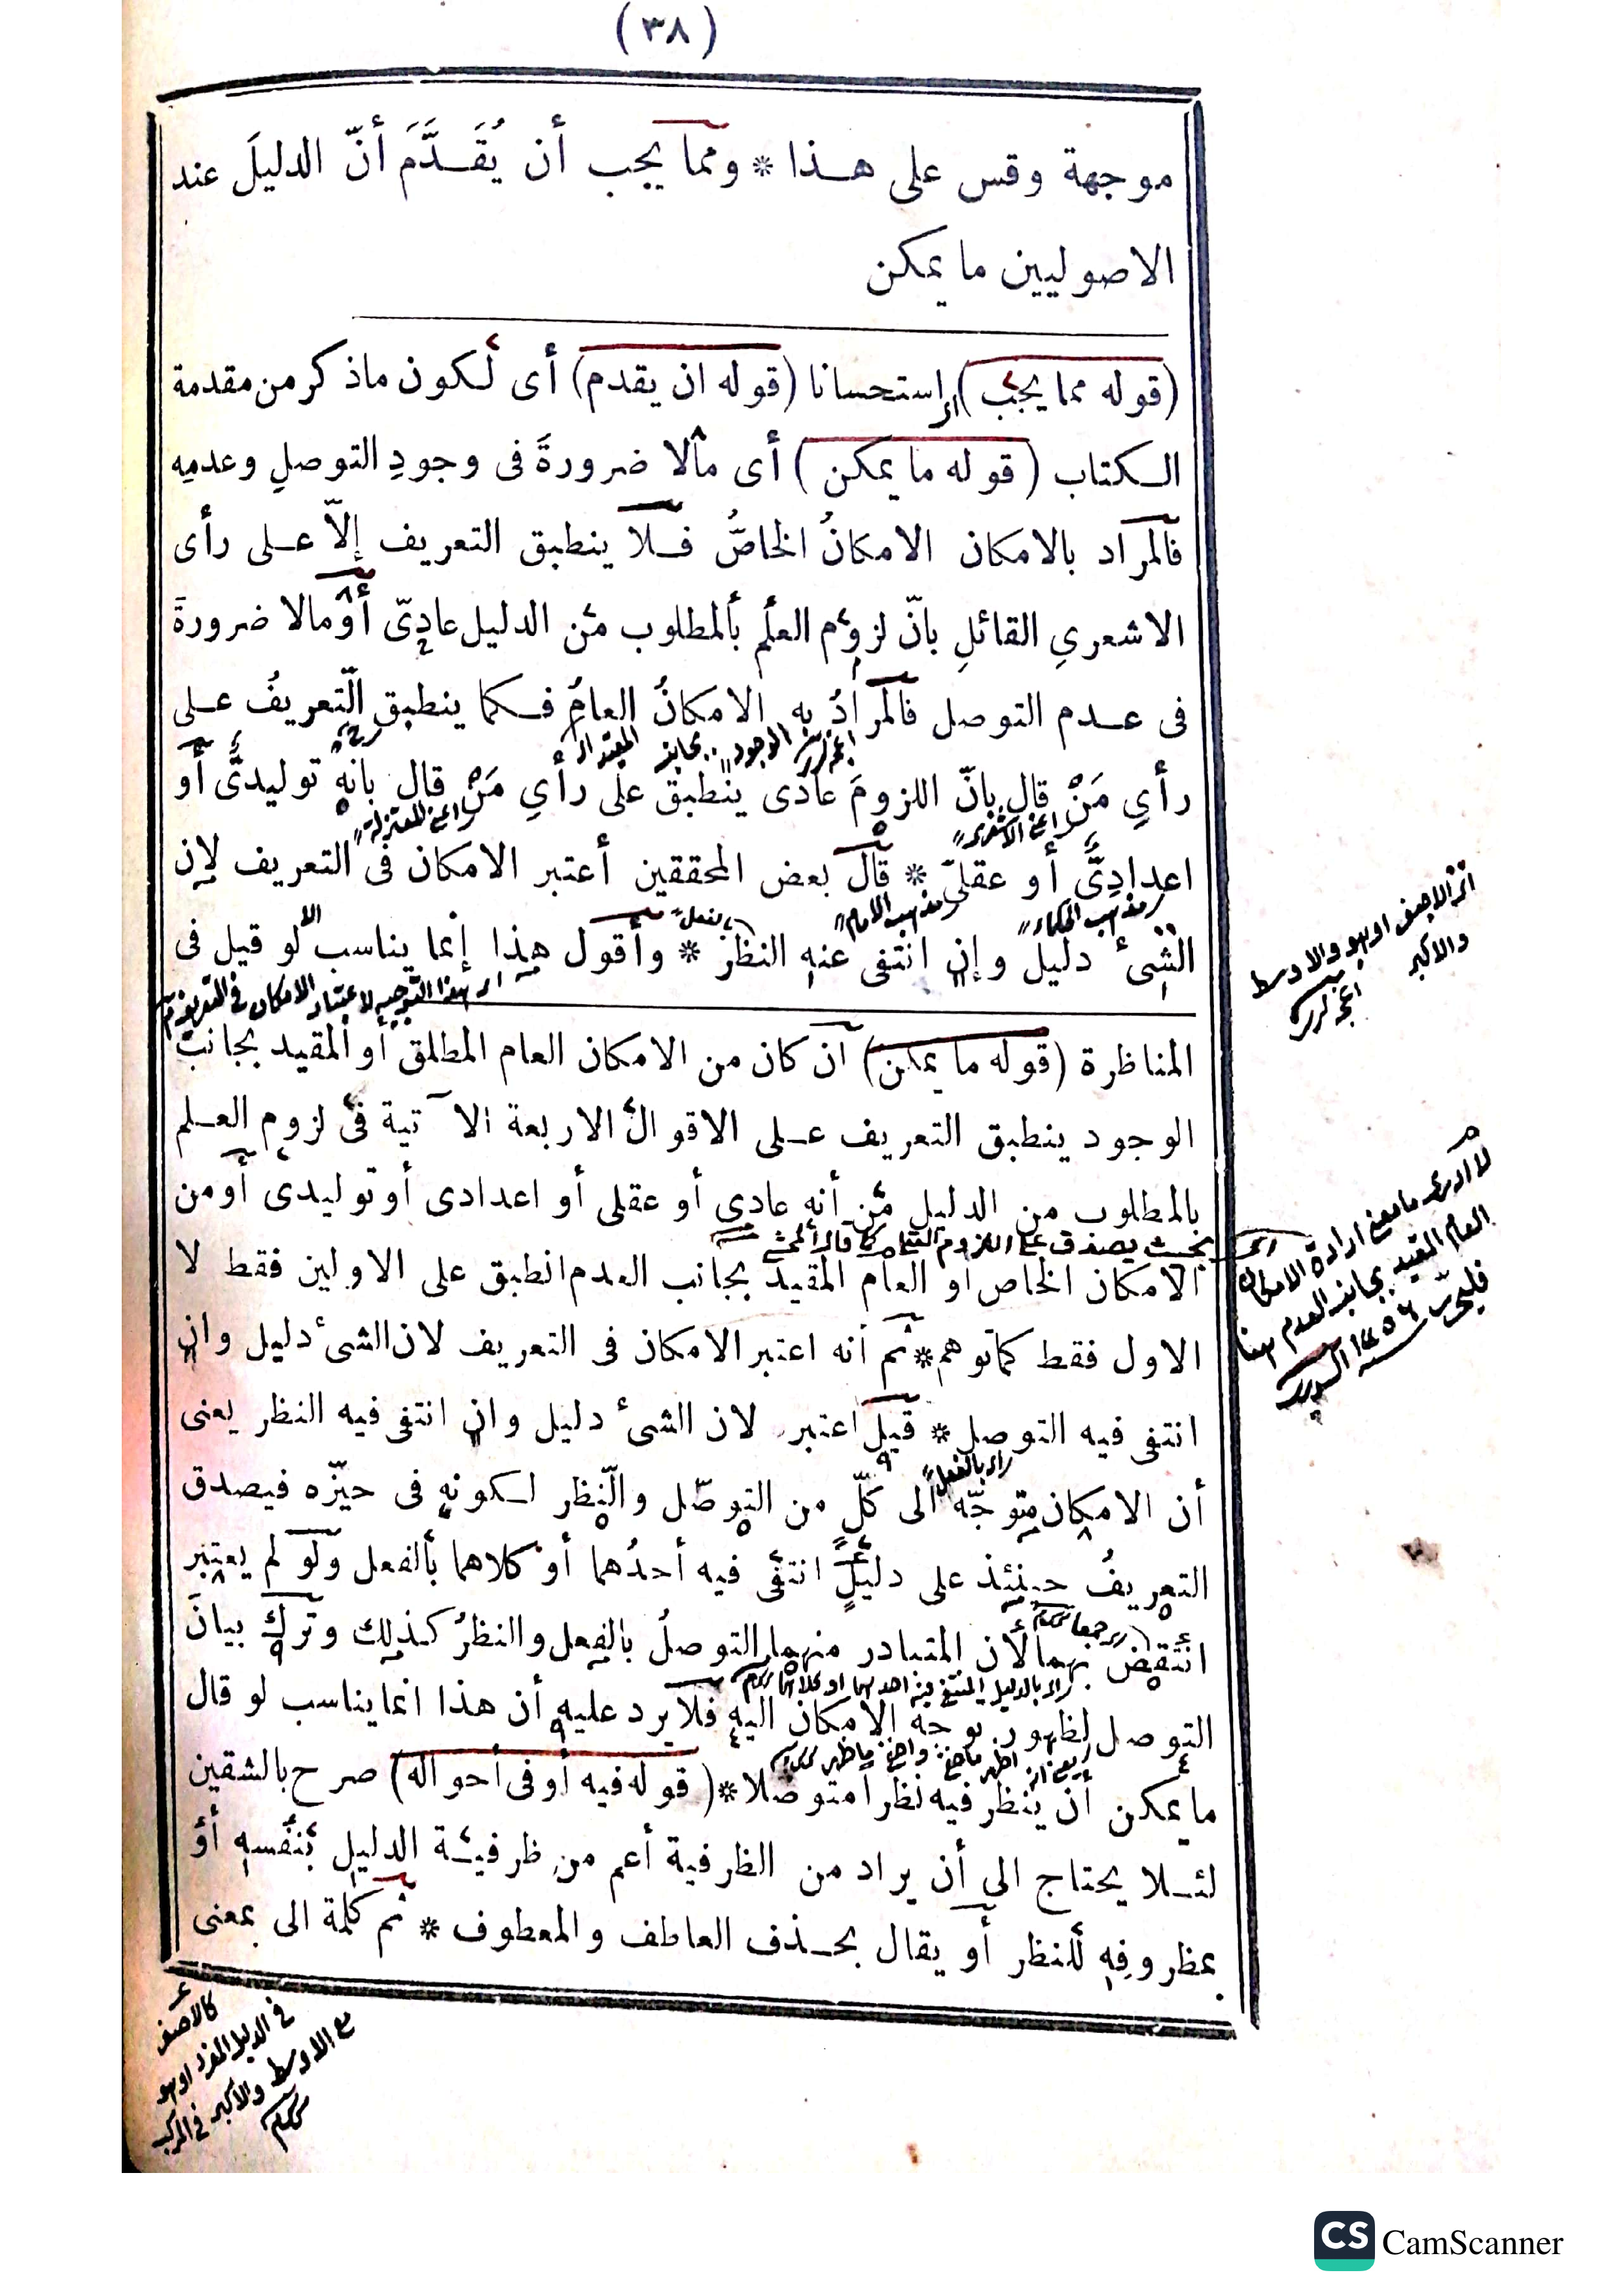 (٣٨)
موجهة وقس على هـذا * ومما يجب أن يُقَـدَّمَ أنّ الدليلَ عند
الاصوليين ما يمكن
(قوله مما يجب) استحسانا (قوله ان يقدم) أى لكون ماذكر من مقدمة
الـكتاب (قوله ما يمكن) أى مالا ضرورةَ فى وجودِ التوصلِ وعدمِه
فالمراد بالامكان الامكانُ الخاصُّ فـلا ينطبق التعريف إلاّ عـلى رأى
الاشعرىِ القائلِ بانّ لزوم العلم بالمطلوب من الدليل عادىّ أو مالا ضرورةَ
فى عـدم التوصل فالمرادُ به الامكانُ العامُ فـكما ينطبق التعريفُ عـلى
رأىِ مَنْ قال بانّ اللزومَ عادى ينطبق على رأىِ مَنْ قال بانه توليدىٌّ أو
اعدادىٌّ أو عقلىّ * قال بعض المحققين أعتبر الامكان فى التعريف لان
الشئ دليل وإن انتفى عنه النظر * وأقول هذا إنما يناسب لو قيل فى
اى هذا التوجيه لاعتبار الامكان فى التعريف
المناظرة (قوله ما يمكن) ان كان من الامكان العام المطلق أو المقيد بجانب
الوجود ينطبق التعريف عـلى الاقوال الاربعة الآتية فى لزوم العـلم
بالمطلوب من الدليل من أنه عادى أو عقلى أو اعدادى أو توليدى أو من
الامكان الخاص أو العام المقيد بجانب العدم انطبق على الاولين فقط لا
الاول فقط كما توهم * ثم أنه اعتبر الامكان فى التعريف لان الشئ دليل وان
انتفى فيه التوصل * قيل اعتبر لان الشئ دليل وان انتفى فيه النظر يعنى
أن الامكان متوجّه الى كلّ من التوصّل والنّظر لـكونه فى حيّزه فيصدق
التعريفُ حينئذ على دليلٍ انتفى فيه أحدُهما أو كلاهما بالفعل ولو لم يعتبر
انتقض بهما لأن المتبادر منهما التوصلُ بالفعل والنظرُ كـذلك وترك بيانَ
التوصل لظهور توجه الامكان اليه فلا يرد عليه أن هذا انما يناسب لو قال
ما يمكن أن ينظر فيه نظرا متوصلا * (قوله فيه أو فى أحواله) صرح بالشقين
لئـلا يحتاج الى أن يراد من الظرفية أعم من ظرفيـة الدليل بنفسه أو
بمظروفِه للنظر أو يقال بحـذف العاطف والمعطوف * ثم كلمة الى بمعنى
كالاصغر
فى الدليل المفرد او هو
مع الاوسط والاكبر فى المركب
CS CamScanner